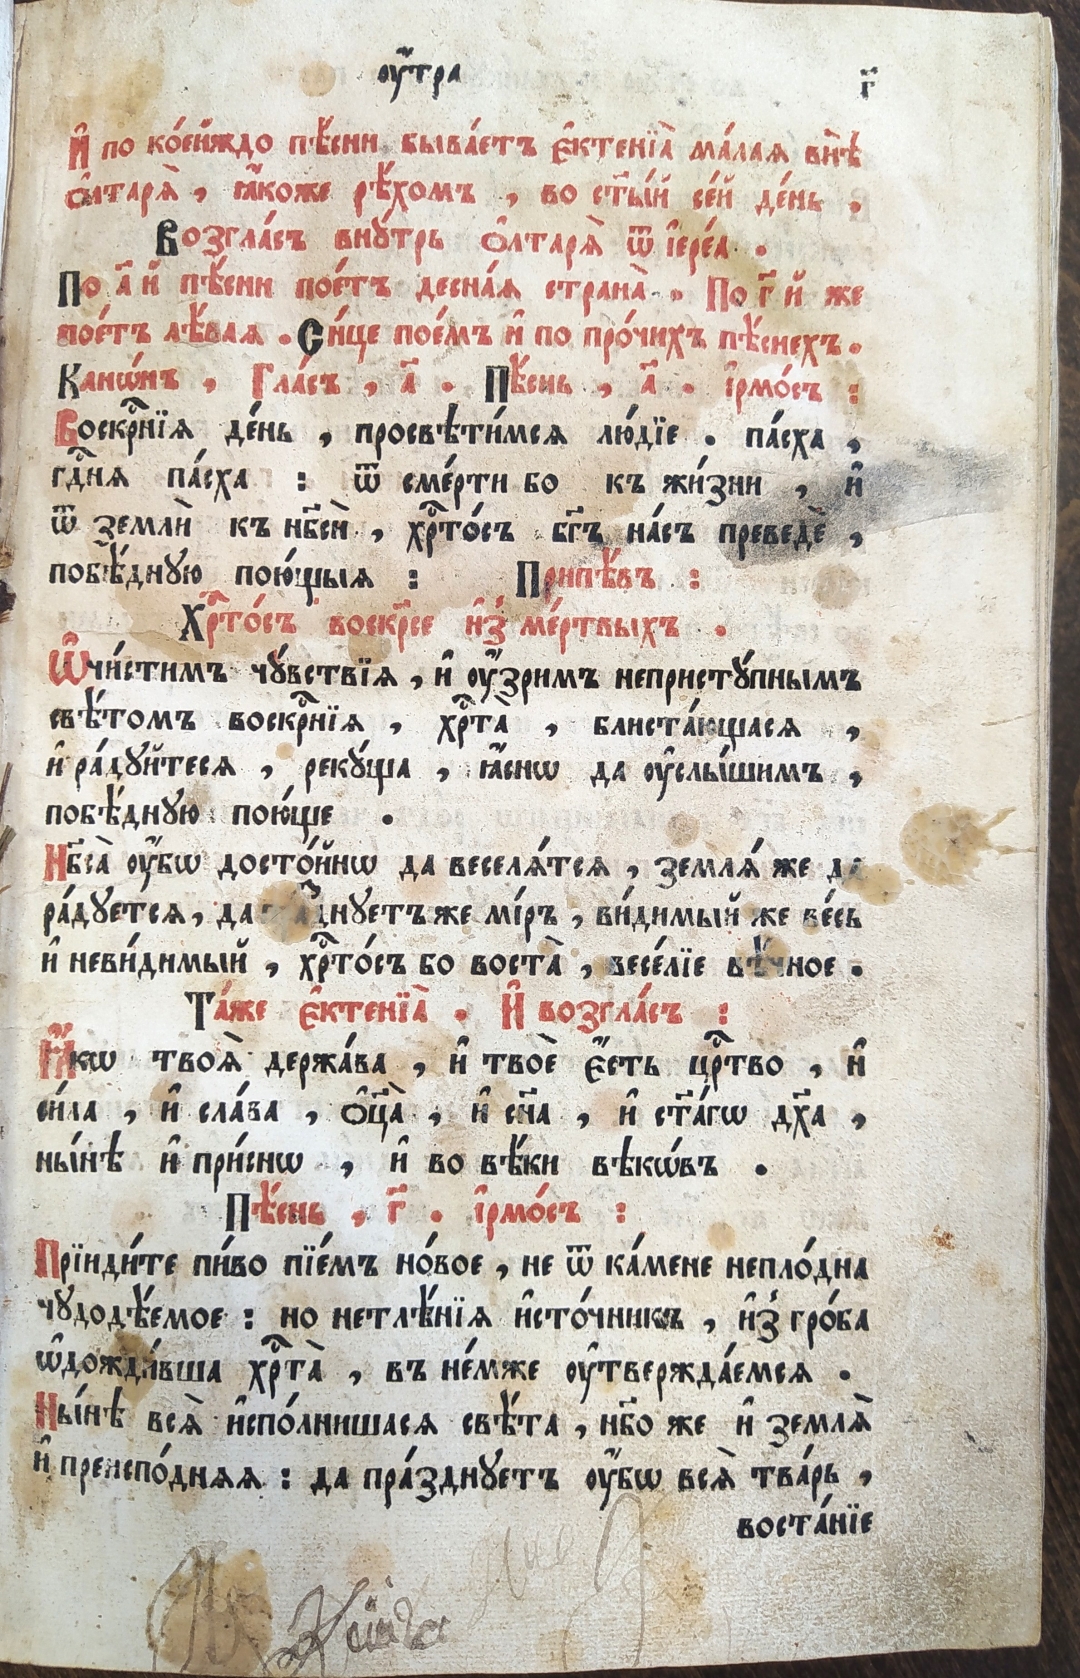 оу҆́тра г҃
И҆ по ко́ейждо пѣ́сни быва́етъ є҆ктенїѧ̀ ма́лаѧ внѣ̀
ѻ҆лтарѧ̀ , ꙗ҆́коже рѣ́хомъ , во ст҃ы́й се́й де́нь .
Возгла́съ вну́трь ѻ҆лтарѧ̀ ѿ і҆ере́а .
По а҃ й пѣ́сни пое́тъ десна́ѧ страна̀ . По г҃ й же
пое́тъ лѣ́ваѧ . Си́це пое́мъ и҆ по про́чихъ пѣ́снехъ .
Канѡ́нъ , Гла́съ , а҃ . Пѣ́снь , а҃ . і҆рмо́съ :
Воскрⷭ҇нїѧ де́нь , просвѣти́мсѧ лю́дїе . па́сха ,
гдⷭ҇нѧ па́сха : ѿ сме́рти бо къ жи́зни , и҆
ѿ землѝ къ нб҃сѝ , хрⷭ҇то́съ бг҃ъ на́съ преведѐ ,
побѣ́дную пою́щыѧ : Припѣ́въ :
Хрⷭ҇то́съ воскр҃се и҆з̾ ме́ртвыхъ .
Ѡ҆чи́стимъ чу́вствїѧ , и҆ оу҆́зримъ непристу́пнымъ
свѣ́томъ воскрⷭ҇нїѧ , хрⷭ҇та̀ , блиста́ющасѧ ,
и҆ ра́дуйтесѧ , реку́ща , ꙗ҆́снѡ да оу҆слы́шимъ ,
побѣ́дную пою́ще .
Нб҃са̀ оу҆́бѡ досто́йнѡ да веселѧ́тсѧ , землѧ́ же да
ра́дуетсѧ , да пра́зднуетъ же мі́ръ , ви́димый же ве́сь
и҆ неви́димый , хрⷭ҇то́съ бо воста̀ , весе́лїе вѣ́чное .
Та́же є҆ктенїѧ̀ . И҆ возгла́съ :
Ꙗ҆́кѡ твоѧ̀ держа́ва , и҆ твоѐ є҆́сть црⷭ҇тво , и҆
си́ла , и҆ сла́ва , ѻ҆ц҃а̀ , и҆ сн҃а , и҆ ст҃а́гѡ дх҃а ,
ны́нѣ и҆ при́снѡ , и҆ во вѣ́ки вѣкѡ́въ .
Пѣ́снь , г҃ . і҆рмо́съ :
Прїиди́те пи́во пїе́мъ но́вое , не ѿ ка́мене непло́дна
чудодѣ́емое : но нетлѣ́нїѧ и҆сто́чникъ , и҆з̾ гро́ба
ѡ҆дожди́вша хрⷭ҇та̀ , въ не́мже оу҆твержда́емсѧ .
Ны́нѣ всѧ̀ и҆спо́лнишасѧ свѣ́та , нб҃о же и҆ землѧ̀
и҆ преиспо́днѧѧ : да пра́зднуетъ оу҆́бѡ всѧ̀ тва́рь ,
воста́нїе